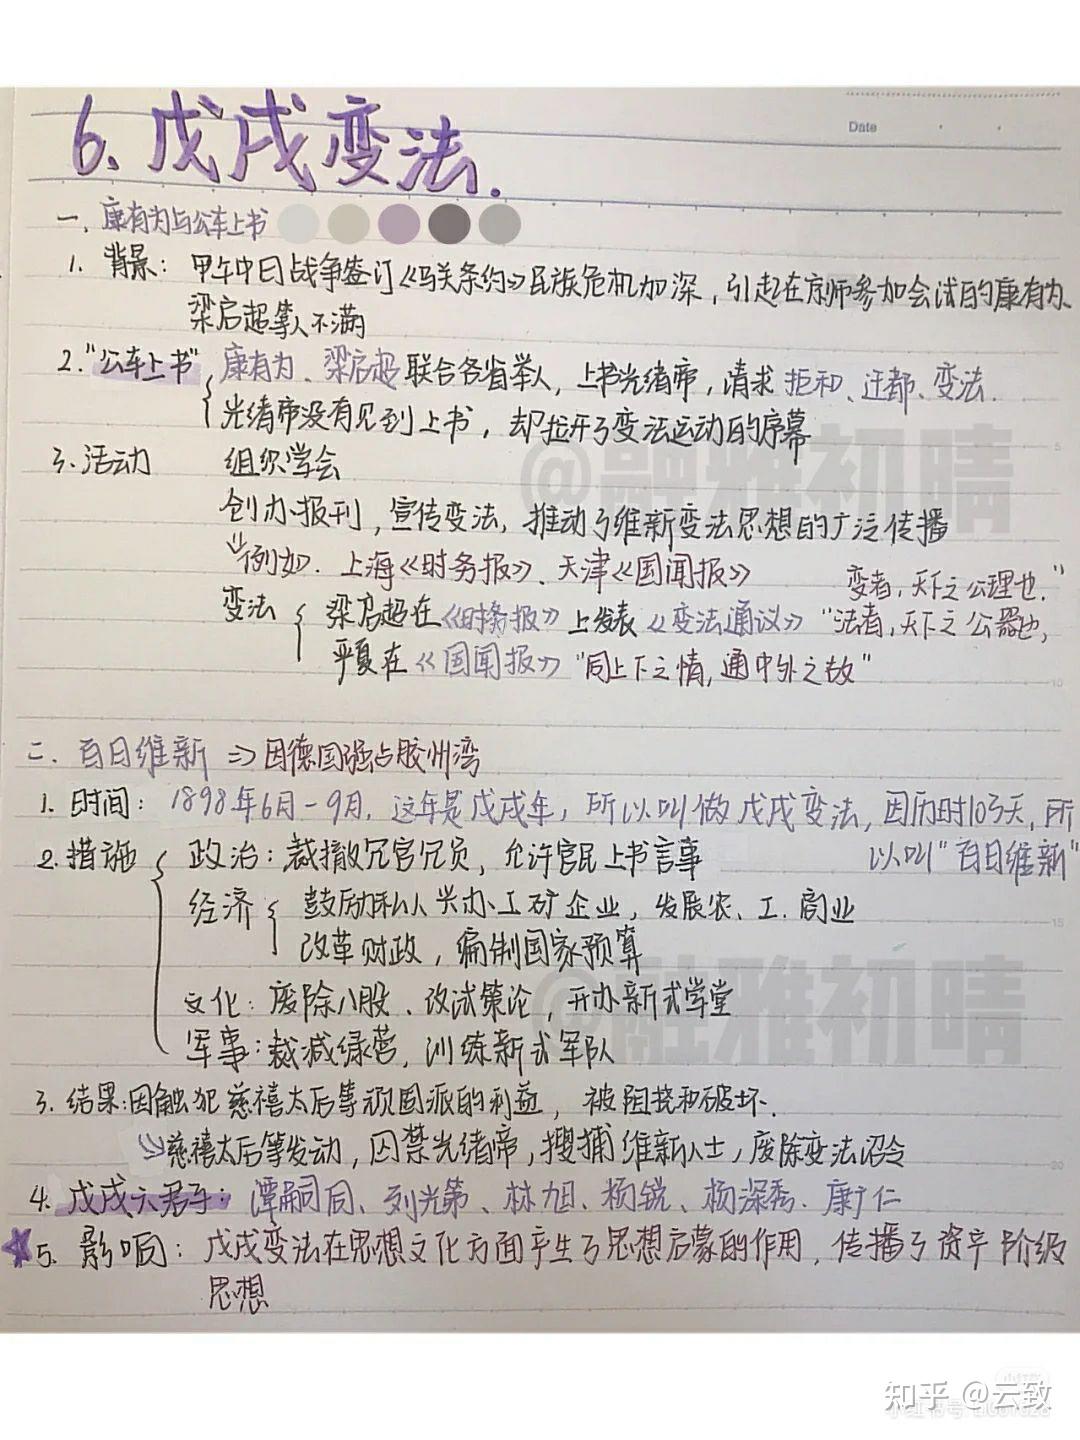 Date
6. 戊戌变法.
一、康有为与公车上书
1. 背景：甲午中日战争签订《马关条约》民族危机加深，引起在京师参加会试的康有为、
梁启超等人不满
2. "公车上书" 康有为、梁启超联合各省举人，上书光绪帝，请求拒和、迁都、变法.
光绪帝没有见到上书，却拉开了变法运动的序幕
3. 活动 组织学会
创办报刊，宣传变法，推动了维新变法思想的广泛传播
例如. 上海《时务报》、天津《国闻报》 变者，天下之公理也."
变法 梁启超在《时务报》上发表《变法通议》"法者，天下之公器也，
严复在《国闻报》"同上下之情，通中外之故"
二. 百日维新 ⇒因德国强占胶州湾
1. 时间：1898年6月-9月，这年是戊戌年，所以叫做戊戌变法，因历时103天，所
以叫"百日维新"
2. 措施 政治：裁撤冗官冗员，允许官民上书言事
经济 鼓励私人兴办工矿企业，发展农、工、商业
改革财政，编制国家预算
文化：废除八股、改试策论，开办新式学堂
军事：裁减绿营，训练新式军队
3. 结果：因触犯慈禧太后等顽固派的利益，被阻挠和破坏.
慈禧太后等发动，囚禁光绪帝，搜捕维新人士，废除变法诏令
4. 戊戌六君子：谭嗣同、刘光第、林旭、杨锐、杨深秀、康广仁
★5. 影响：戊戌变法在思想文化方面产生了思想启蒙的作用，传播了资产阶级
思想
@融雅初晴
@融雅初晴
知乎 @云致